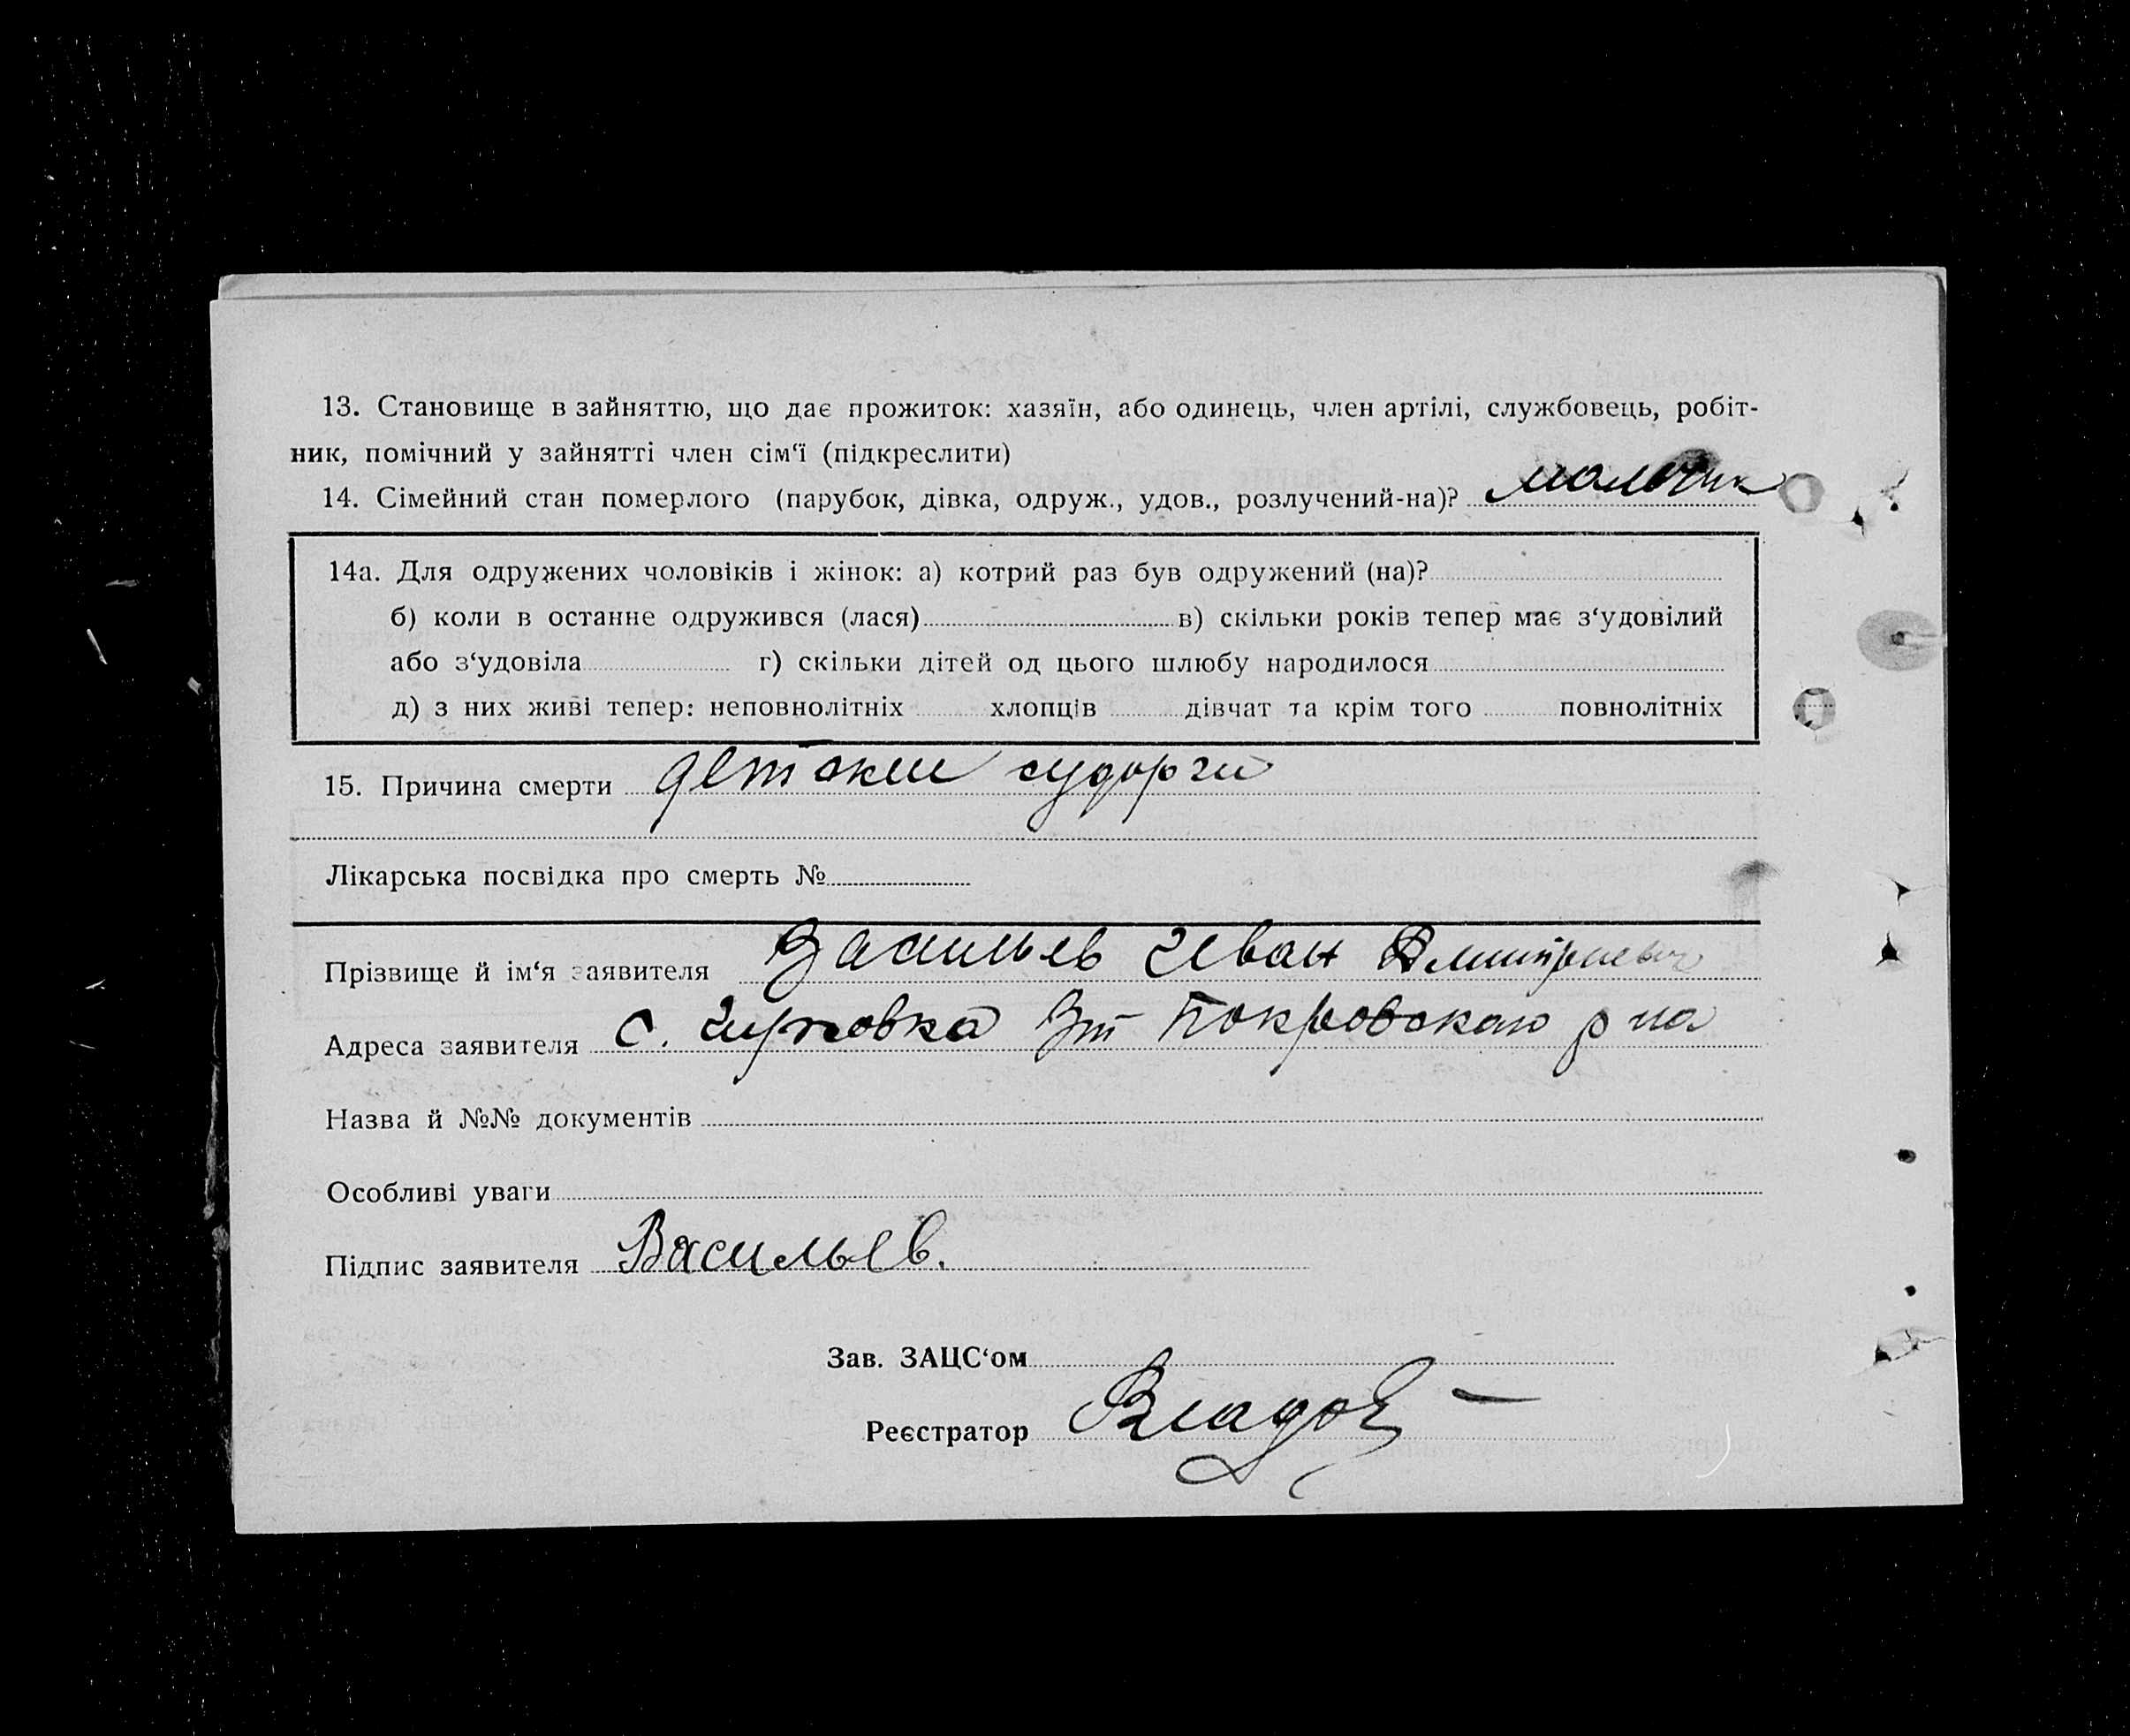 13. Становище в зайняттю, що дає прожиток: хазяїн, або одинець, член артілі, службовець, робіт-
ник, помічний у зайнятті член сім‘ї (підкреслити)
14. Сімейний стан померлого (парубок, дівка, одруж., удов., розлучений-на)? мальчик
14а. Для одружених чоловіків і жінок: а) котрий раз був одружений (на)?
б) коли в останне одружився (лася) в) скільки років тепер має з‘удовілий
або з‘удовіла г) скільки дітей од цього шлюбу народилося
д) з них живі тепер: неповнолітніх хлопців дівчат та крім того повнолітніх
15. Причина смерти детские судорги
Лікарська посвідка про смерть №
Прізвище й ім‘я заявителя Васильев Иван Дмитриевич
Адреса заявителя с. Покровскаго р на
Назва й №№ документів
Особливі уваги
Підпис заявителя Васильев.
Зав. ЗАЦС‘ом
Реєстратор